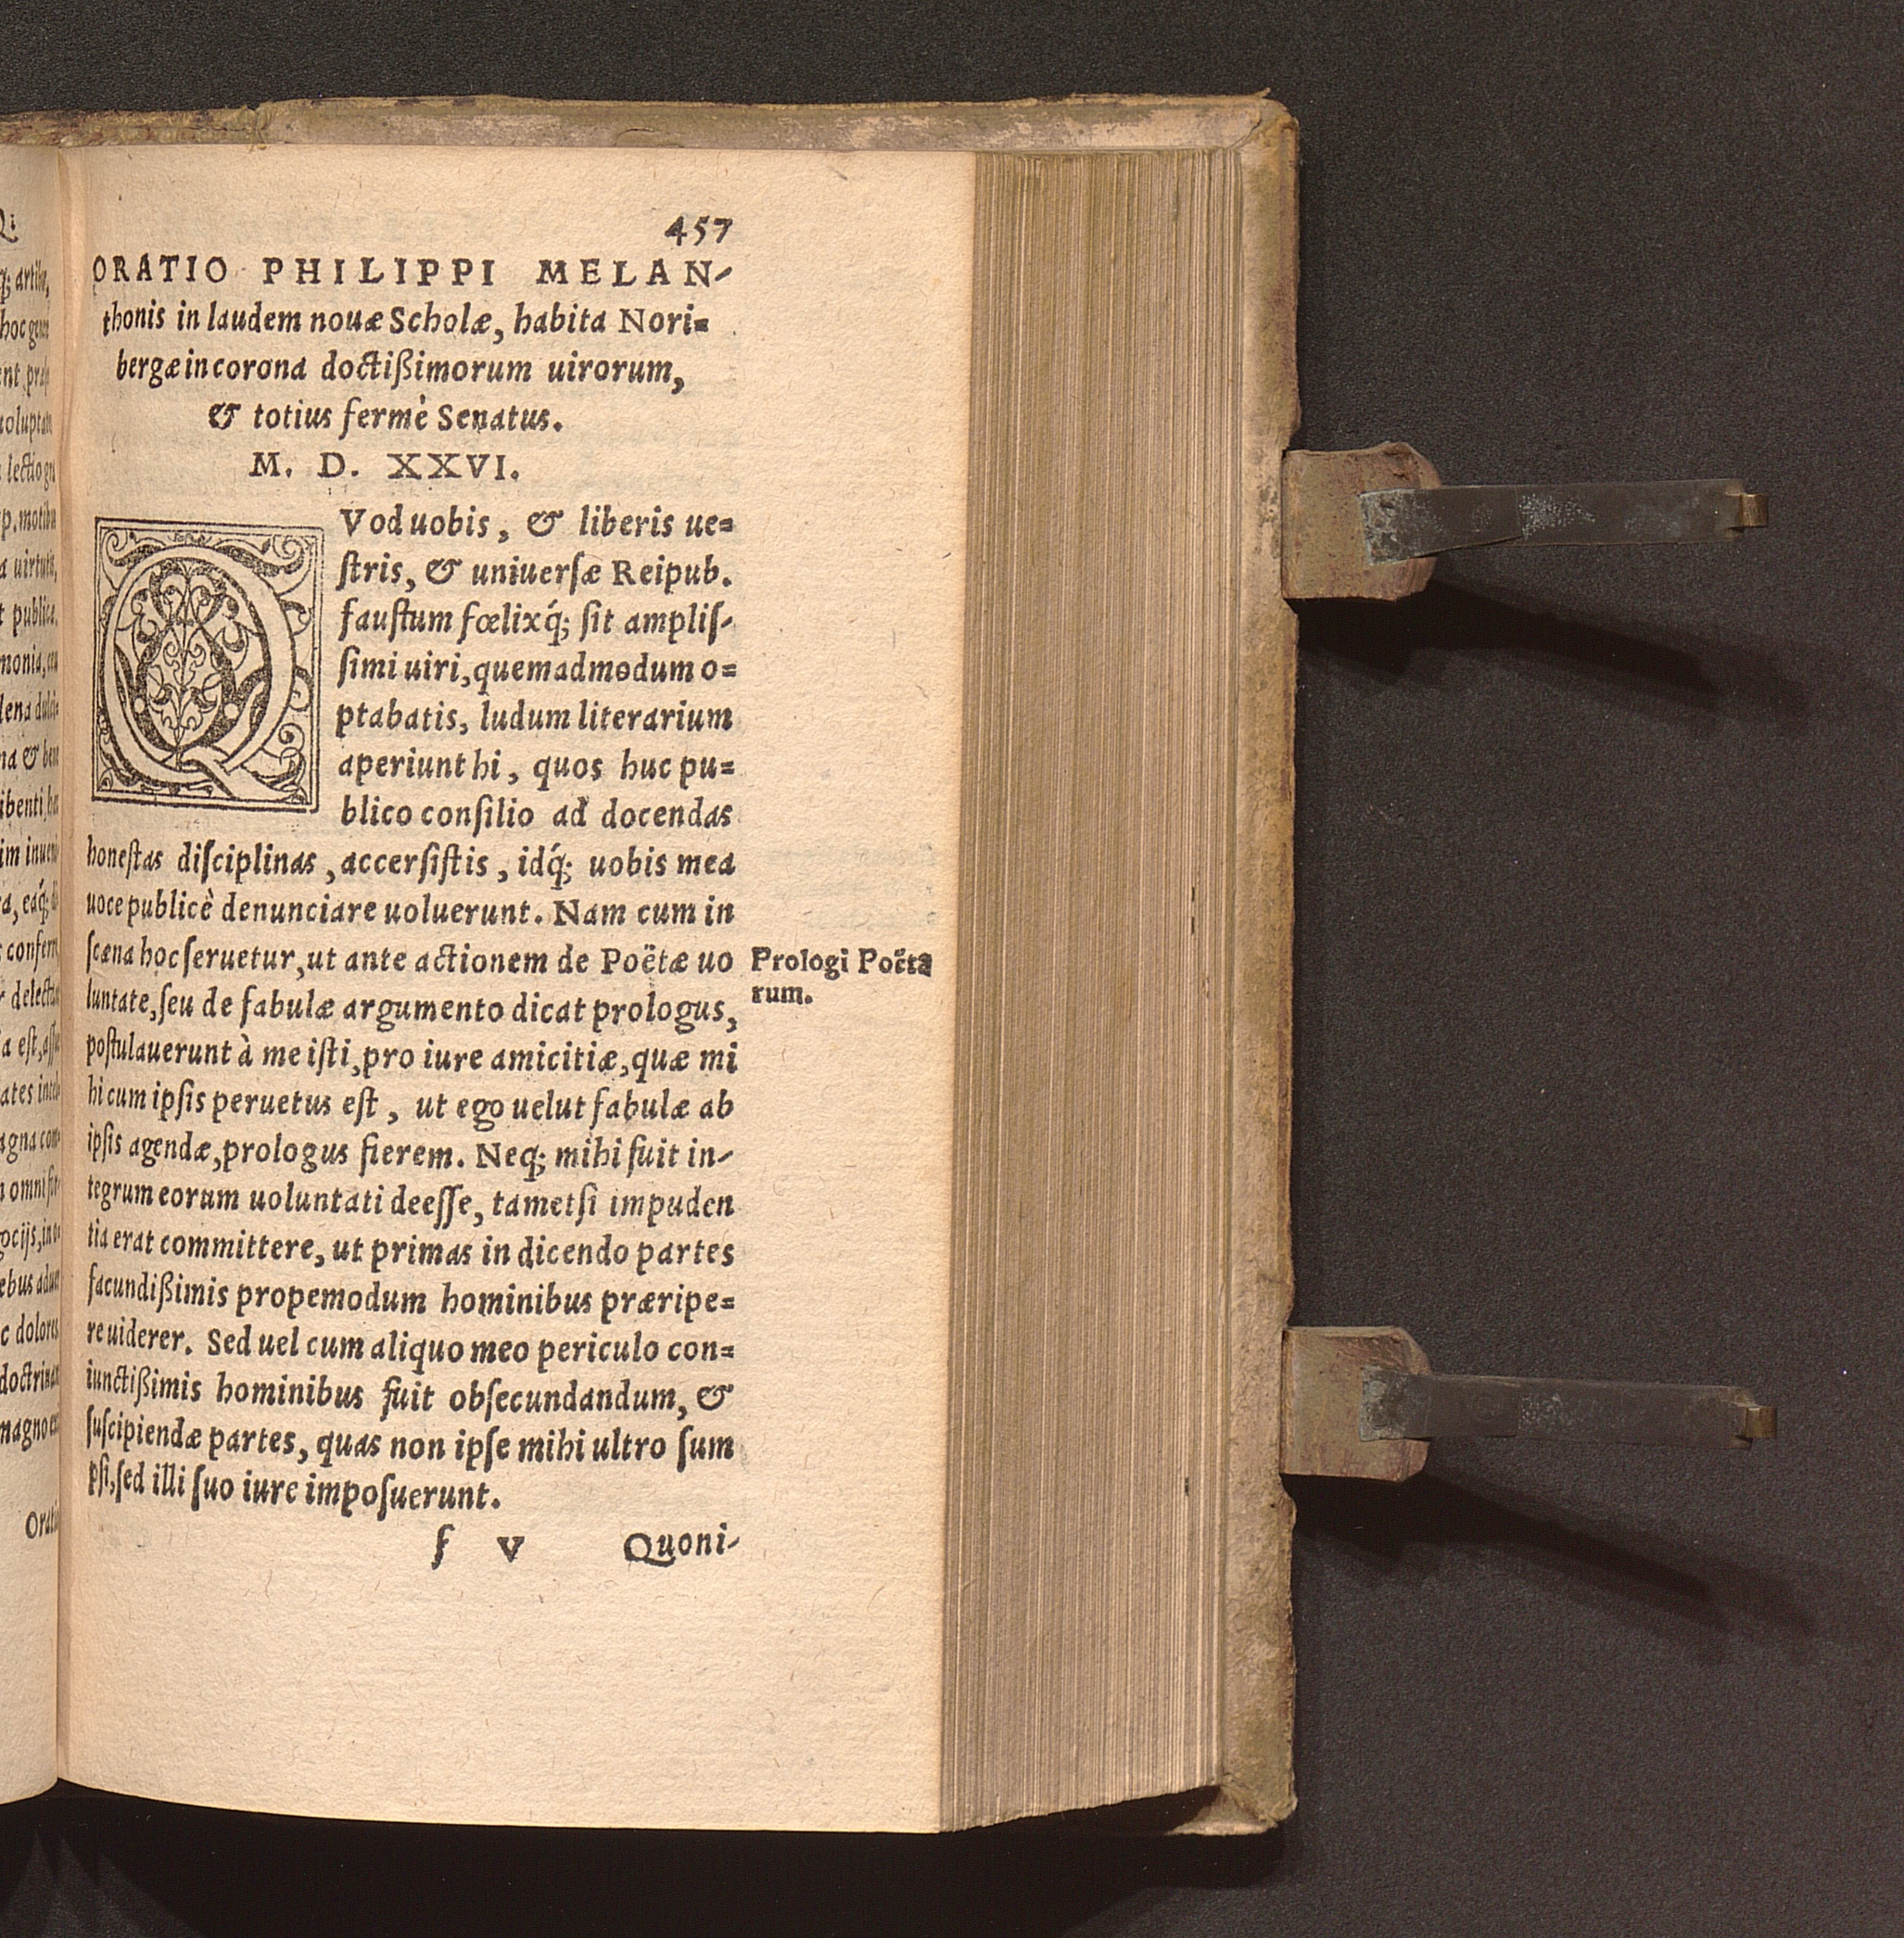 457
ORATIO PHILIPPI MELAN-
thonis in laudem nouæ Scholæ, habita Nori=
bergæ in corona doctißimorum uirorum,
& totius fermè Senatus.
M. D. XXVI.
QVod uobis, & liberis ue=
ſtris, & uniuerſæ Reipub.
fauſtum fœlixq́; ſit ampliſ-
ſimi uiri, quemadmodum o=
ptabatis, ludum literarium
aperiunt hi, quos huc pu=
blico conſilio ad docendas
honeſtas diſciplinas, accerſiſtis, idq́; uobis mea
uoce publicè denunciare uoluerunt. Nam cum in
ſcæna hoc ſeruetur, ut ante actionem de Poëtæ uo
luntate, ſeu de fabulæ argumento dicat prologus,
poſtulauerunt à me iſti, pro iure amicitiæ, quæ mi
hi cum ipſis peruetus eſt, ut ego uelut fabulæ ab
ipſis agendæ, prologus fierem. Neq; mihi fuit in-
tegrum eorum uoluntati deeſſe, tametſi impuden
tia erat committere, ut primas in dicendo partes
facundißimis propemodum hominibus præripe=
re uiderer. Sed uel cum aliquo meo periculo con=
iunctißimis hominibus fuit obſecundandum, &
ſuſcipiendæ partes, quas non ipſe mihi ultro ſum
pſi, ſed illi ſuo iure impoſuerunt.
f v Quoni-
Prologi Poëta
rum.